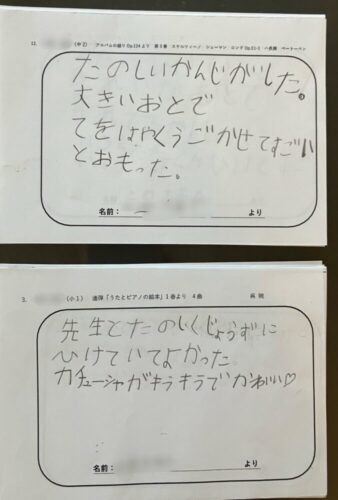 12. (中2) アルバムの綴り Op.124より 第5番 ズケルツィーノ シューマン ロンド Op.51-1 ハ長調 ベートーベン
たのしいかんじがした。
大きいおとで
てをはやくうごかせてすごい
とおもった。
名前: より
3. (小1) 連弾「うたとピアノの絵本」1巻より 4曲 呉 暁
先生とたのしくじょうずに
ひけていてよかった
カチューシャがキラキラでかわいい♡
名前: より